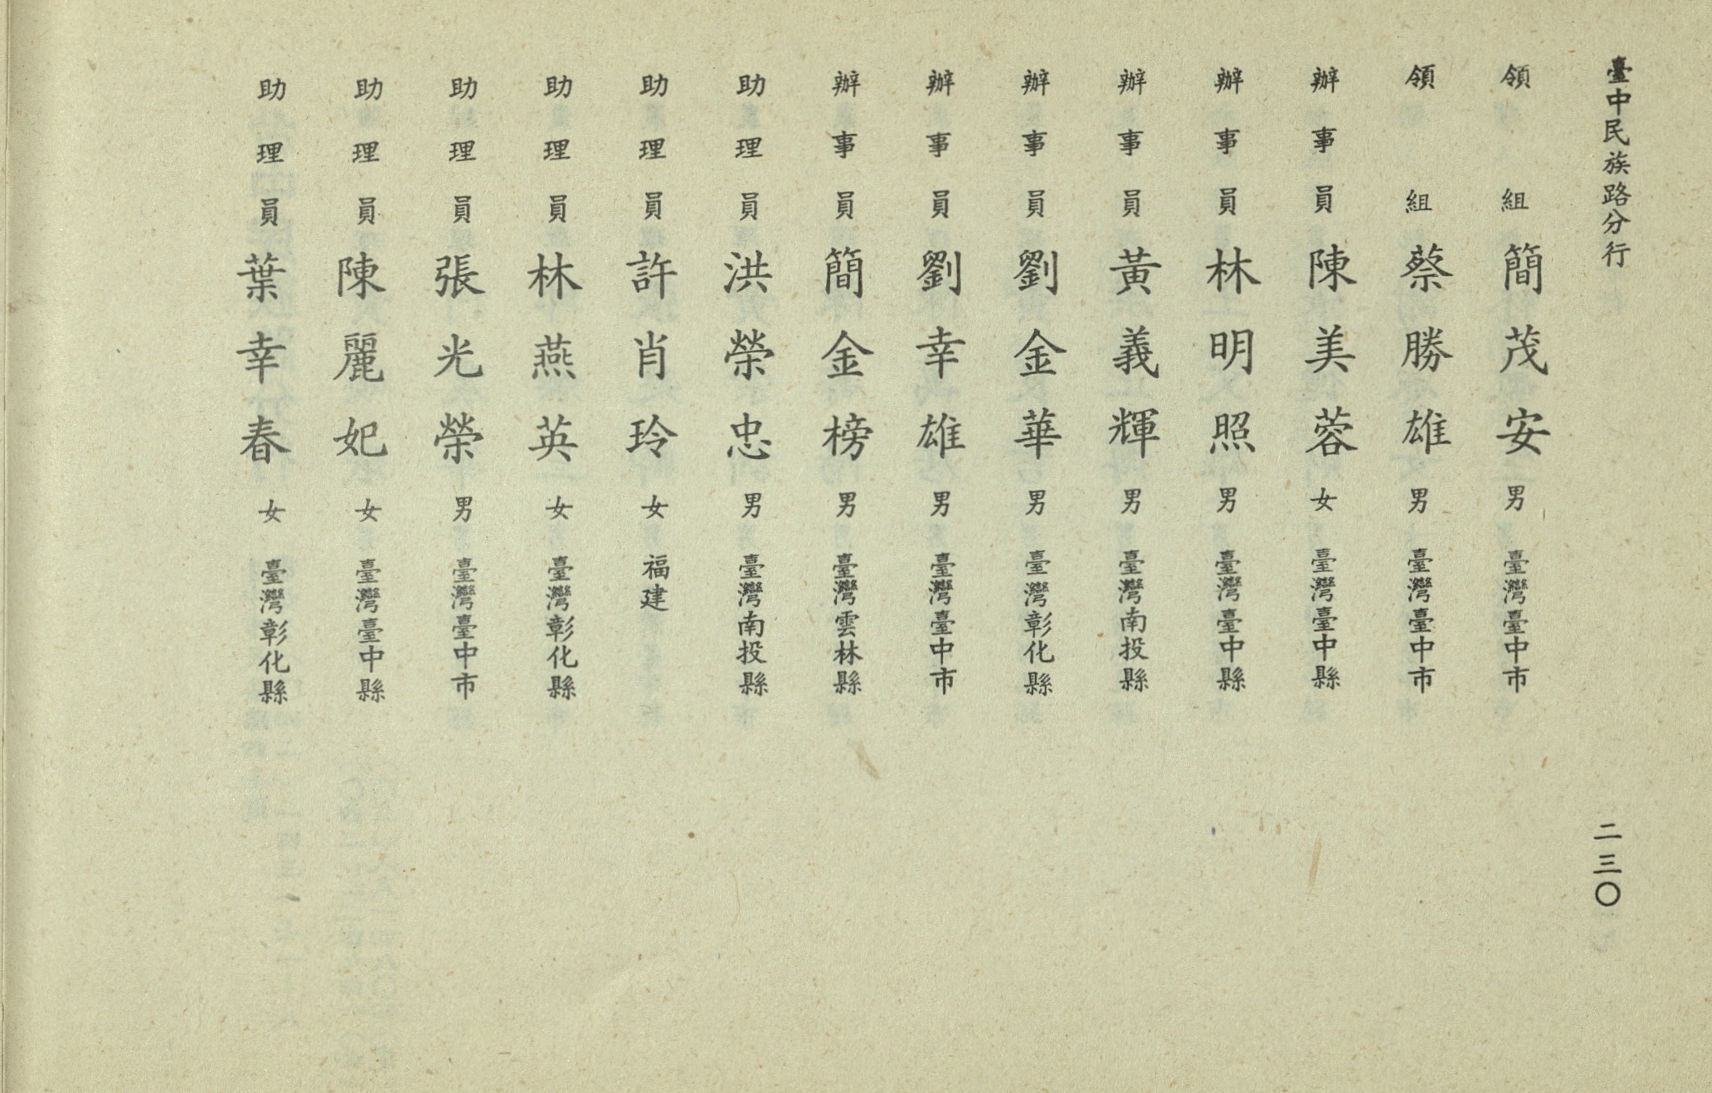 臺中民族路分行
二三〇
領組簡茂安男臺灣臺中市
領組蔡勝雄男臺灣臺中市
辦事員陳美蓉女臺灣臺中縣
辦事員林明照男臺灣臺中縣
辦事員黃義輝男臺灣南投縣
辦事員劉金華男臺灣彰化縣
辦事員劉幸雄男臺灣臺中市
辦事員簡金榜男臺灣雲林縣
助理員洪榮忠男臺灣南投縣
助理員許肖玲女福建
助理員林燕英女臺灣彰化縣
助理員張光榮男臺灣臺中市
助理員陳麗妃女臺灣臺中縣
助理員葉幸春女臺灣彰化縣